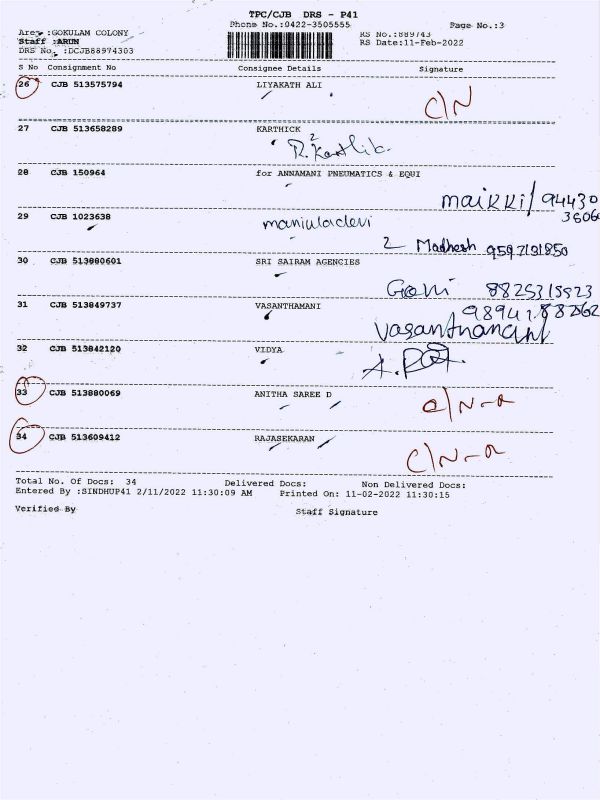 TPC/CJB DRS - P41
Phone No.:0422-3505555 Page No.:3
Area :GOKULAM COLONY RS No.:889743
Staff :ARUN RS Date:11-Feb-2022
DRS No. :DCJB88974303
S No Consignment No Consignee Details Signature
26 CJB 513575794 LIYAKATH ALI
C/N
27 CJB 513658289 KARTHICK
2
R. Karthik
28 CJB 150964 for ANNAMANI PNEUMATICS & EQUI
94430
29 CJB 1023638
2 Madhesh
30 CJB 513880601 SRI SAIRAM AGENCIES
31 CJB 513849737 VASANTHAMANI
Vasanthamani
32 CJB 513842120 VIDYA
33 CJB 513880069 ANITHA SAREE D
C/N-a
34 CJB 513609412 RAJASEKARAN
C/N-a
Total No. Of Docs: 34 Delivered Docs: Non Delivered Docs:
Entered By :SINDHUP41 2/11/2022 11:30:09 AM Printed On: 11-02-2022 11:30:15
Verified By Staff Signature